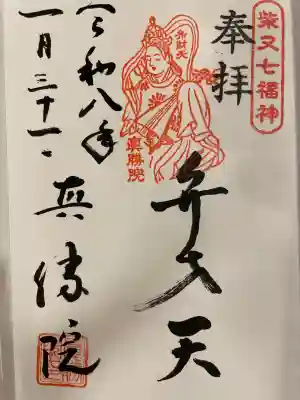 柴又七福神
奉拝
弁財天
眞勝院
弁才天
令和八年
一月三十一日
真勝院